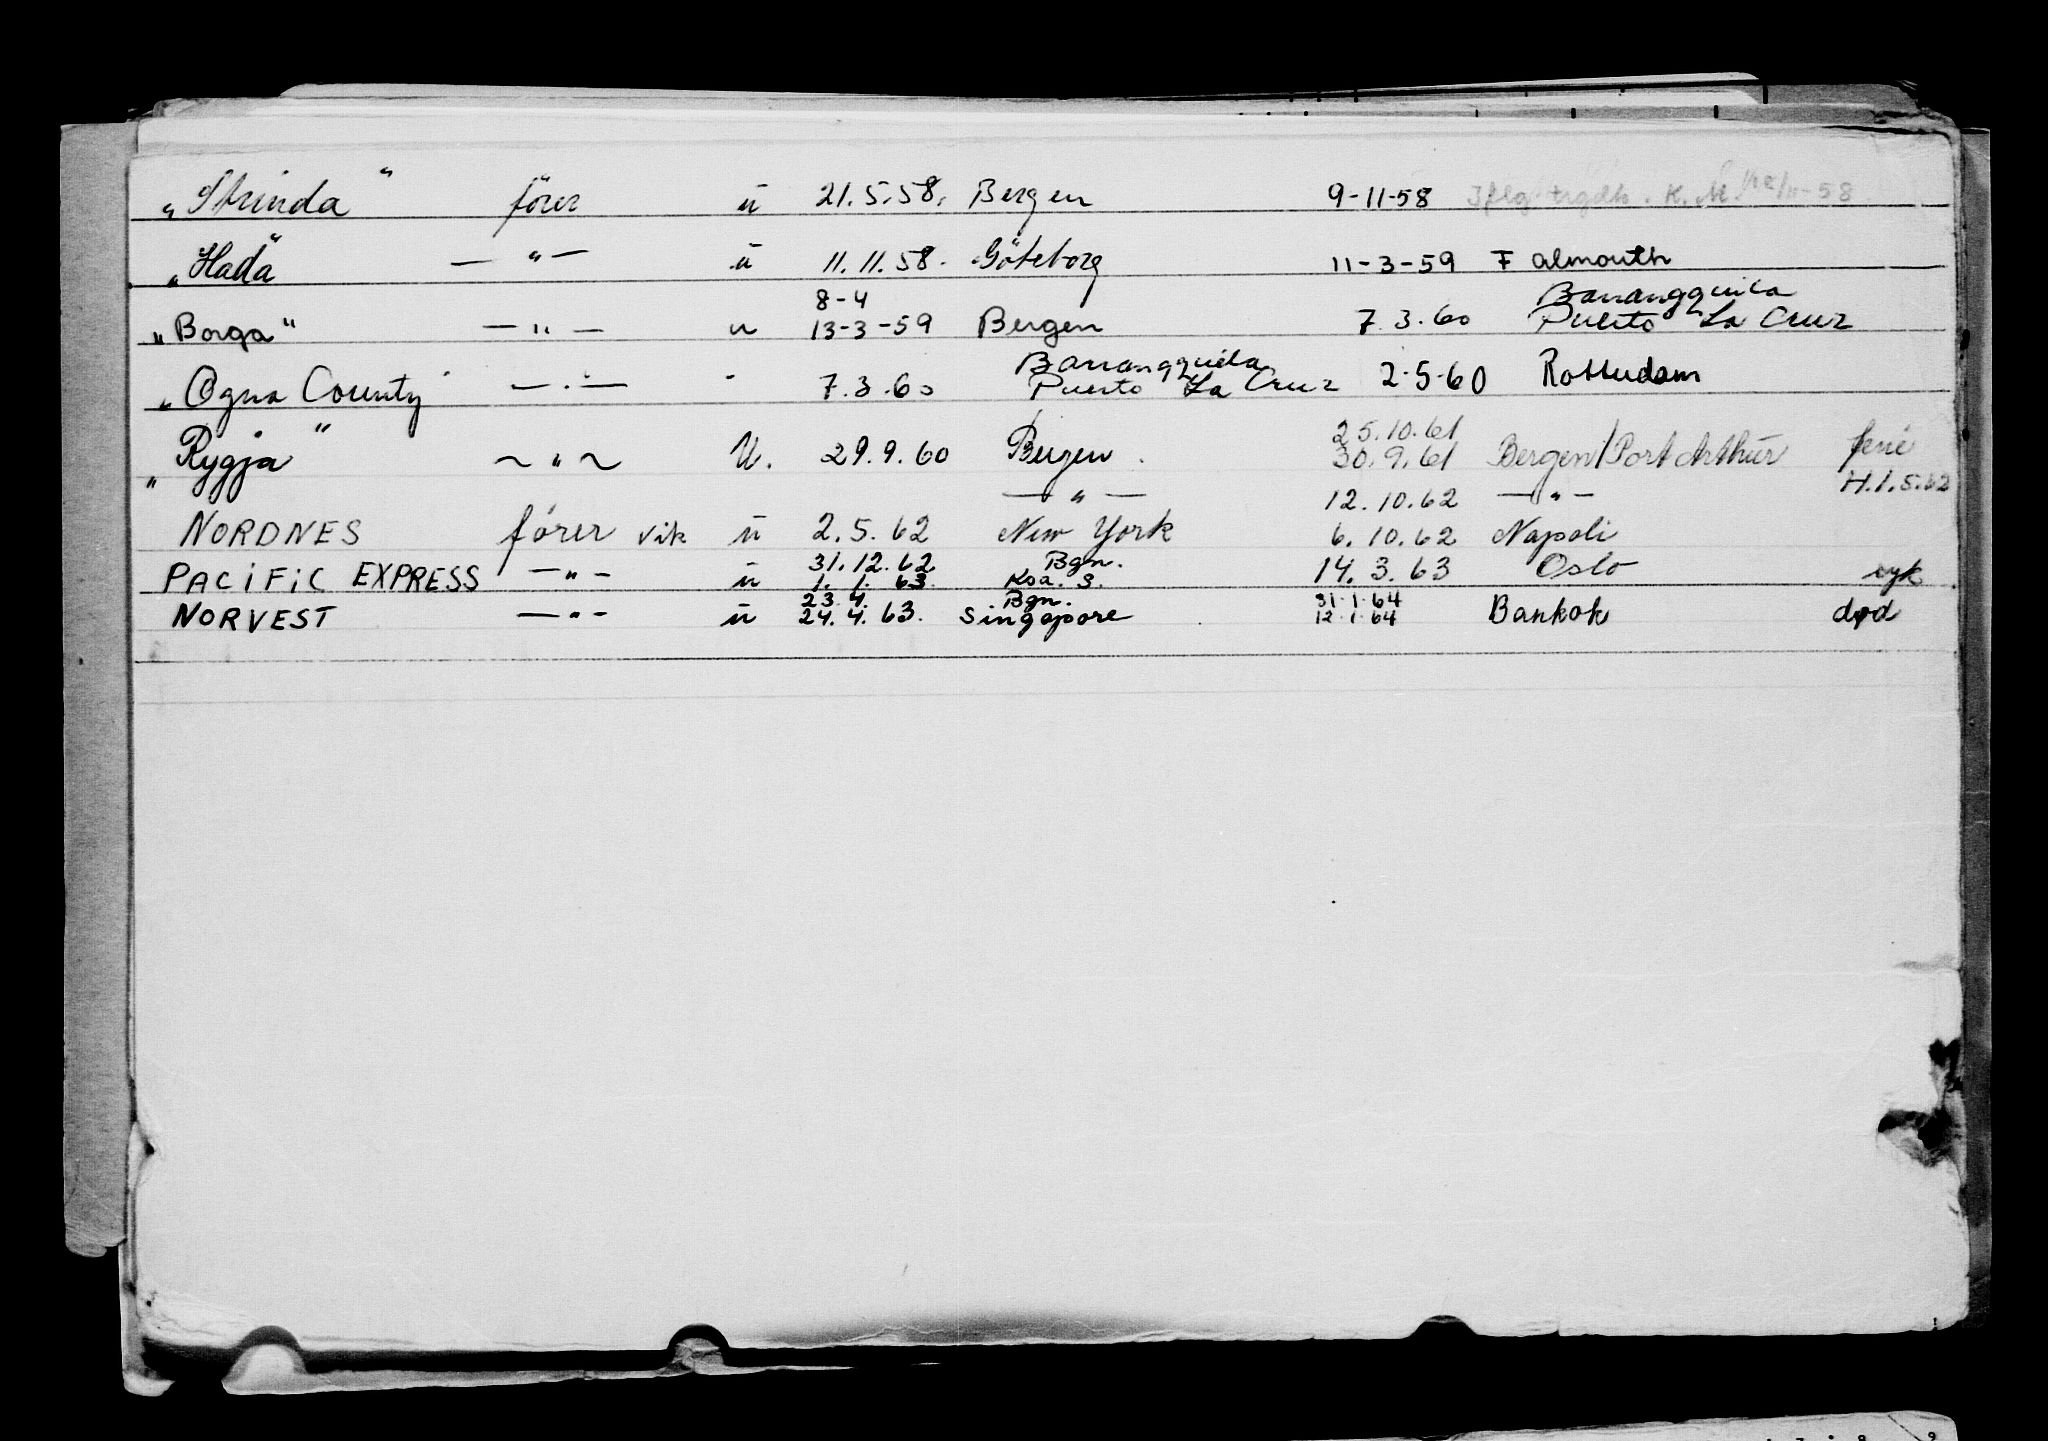 „Strinda“ förer ü 21.5.58. Bergen 9-11-58 Iflg. trgdk. K.M. /11-58
„Hada“ — „ — ü 11.11.58. Göteborg 11-3-59 Falmouth
8-4 Barrangquila
„Borga“ — „ — u 13-3-59 Bergen 7.3.60 Puerto La Cruz
Barrangquila
„Ogna County“ — „ — " 7.3.60 Puerto La Cruz 2-5-60 Rotterdam
25.10.61
„Rygja“ ~ „ ~ U. 29.9.60 Bergen. 30.9.61 Bergen/Port Arthür ferie
— „ — 12.10.62 — „ — H.1.5.62
NORDNES förer vik ü 2.5.62 New York 6.10.62 Napoli
31.12.62 Bgn.
PACIFIC EXPRESS — „ — ü 1.1.63. Ksa. S. 14.3.63 Oslo syk
23.4. Bgn. 31.1.64
NORVEST — „ — ü 24.4.63. Singapore 12.1.64 Bankok død